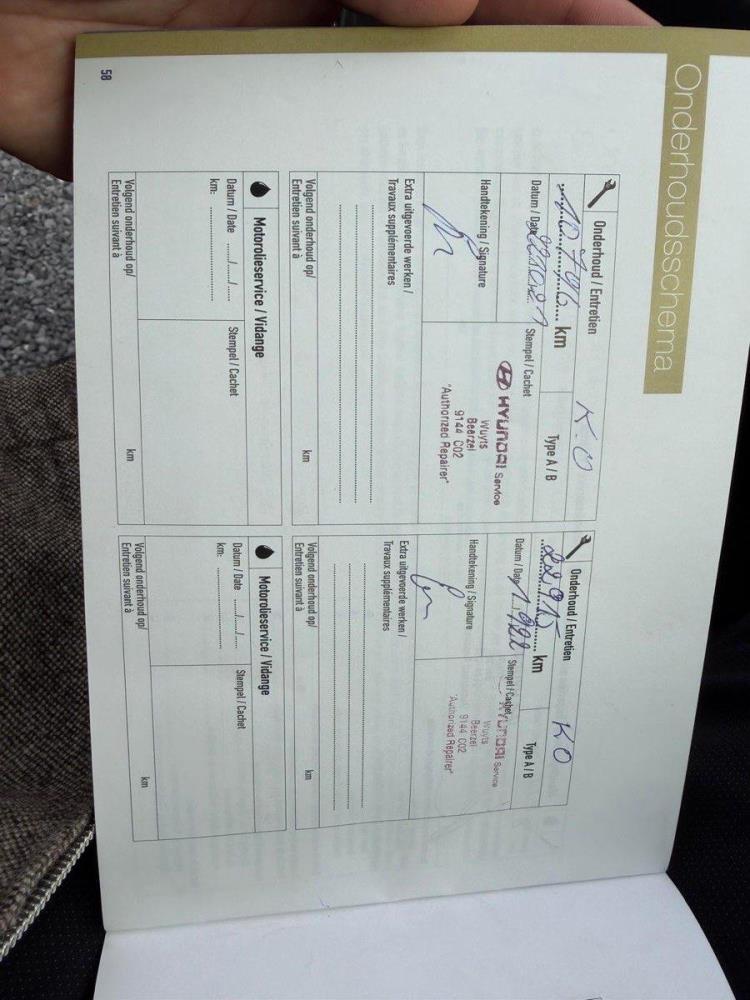 Onderhoudsschema
Onderhoud / Entretien
K.O
km
Type A / B
Datum / Date
Stempel / Cachet
HYUNDAI Service
Wuyts
Beerzel
9144 C02
"Authorized Repairer"
Handtekening / Signature
Extra uitgevoerde werken /
Travaux supplémentaires
Volgend onderhoud op/
Entretien suivant à
km
Motorolieservice / Vidange
Datum / Date ....../....../......
km: ..................
Stempel / Cachet
Volgend onderhoud op/
Entretien suivant à
km
Onderhoud / Entretien
KO
22915 km
Type A / B
Datum / Date
Stempel / Cachet
HYUNDAI Service
Wuyts
Beerzel
9144 C02
"Authorized Repairer"
Handtekening / Signature
Extra uitgevoerde werken /
Travaux supplémentaires
Volgend onderhoud op/
Entretien suivant à
km
Motorolieservice / Vidange
Datum / Date ....../....../......
km: ..................
Stempel / Cachet
Volgend onderhoud op/
Entretien suivant à
km
58